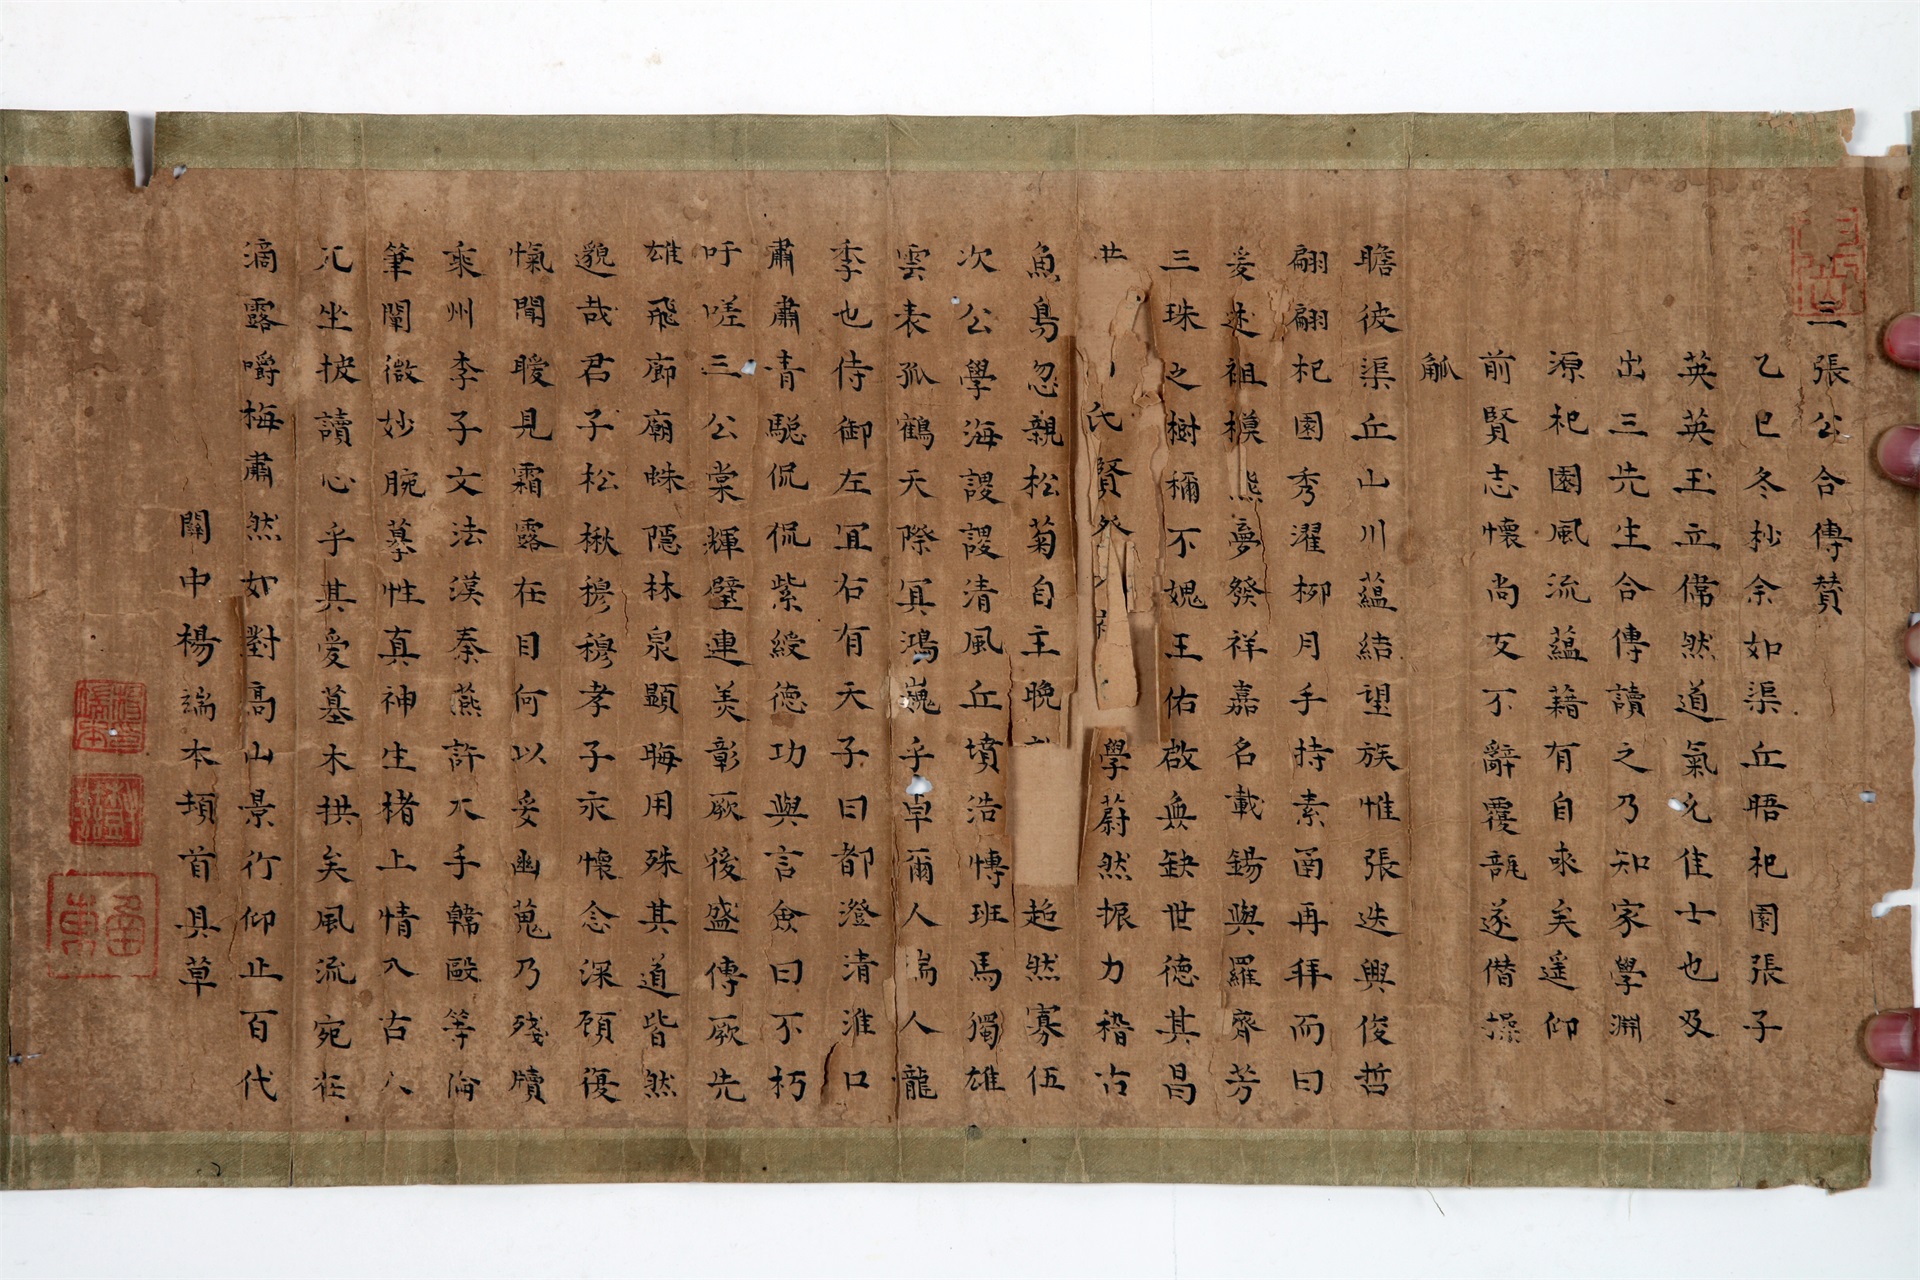 三張公合傳贊
乙巳冬杪余如渠丘晤杞園張子
英英玉立儒然道氣允佳士也及
出三先生合傳讀之乃知家學淵
源杞園風流蘊藉有自來矣遥仰
前賢志懷尚友不辭覆瓿遂僭操
觚
瞻彼渠丘山川蘊結望族惟張迭興俊哲
翩翩杞園秀濯柳月手持素函再拜而曰
爰述祖模熊夢發祥嘉名載錫與羅齊芳
三珠之樹穪不媿王佑啟無缺世德其昌
氏賢學蔚然振力稽古
魚鳥忽親松菊自主晚超然寡伍
次公學海謖謖清風丘墳浩慱班馬獨雄
雲表孤鶴天際冥鴻巍乎卓爾人瑞人龍
季也侍御左冝右有天子曰都澄清淮口
肅肅青驄侃侃紫綬德功與言僉曰不朽
吁嗟三公棠輝璧連羙彰厥後盛傳厥先
雄飛廊廟蛛隠林泉顯晦用殊其道皆然
邈哉君子松楸穆穆孝子永懷念深頋復
愾聞曖見霜露在目何以妥幽蒐乃殘牘
乘州李子文法漢秦燕許大手韓歐等倫
筆闡微妙腕摹性真神生楮上情入古人
兀坐披讀心乎其愛墓木拱矣風流宛在
滴露嚼梅肅然如對高山景行仰止百代
關中楊端本頓首具草